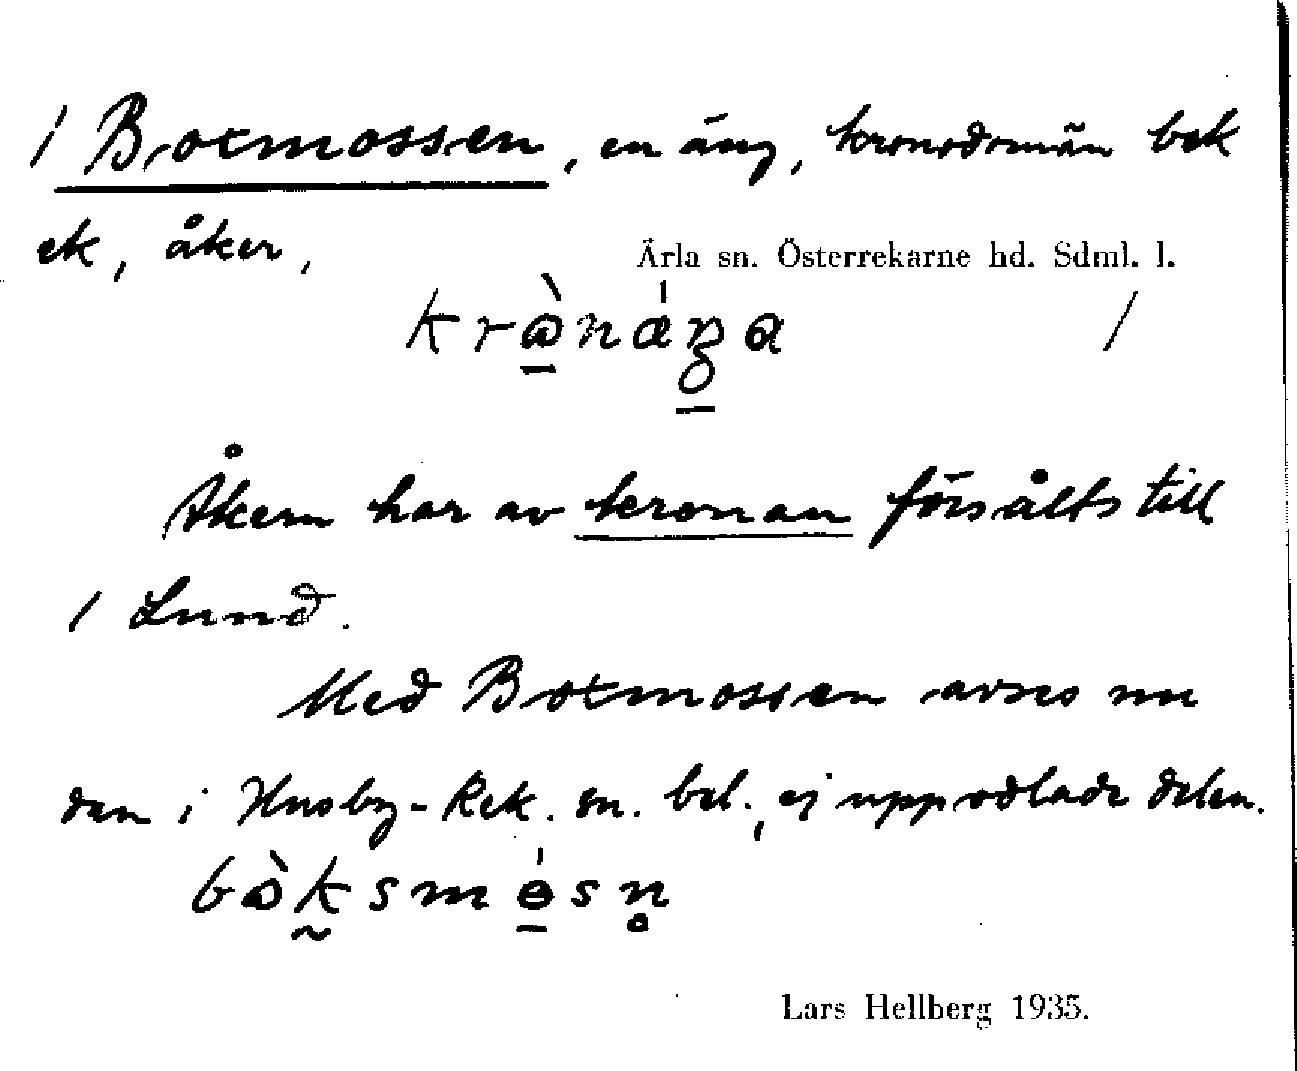 / Boxmossen, en äng, kronodomän bek
ek, åker,
Ärla sn. Österrekarne hd. Sdml. l.
krònáŋa /
Åkern har av kronan försålts till
/ Lund.
Med Boxmossen avses nu
den i Husby-Rek. sn. bel., ej uppodlade delen.
bòksmósn̥
Lars Hellberg 1935.